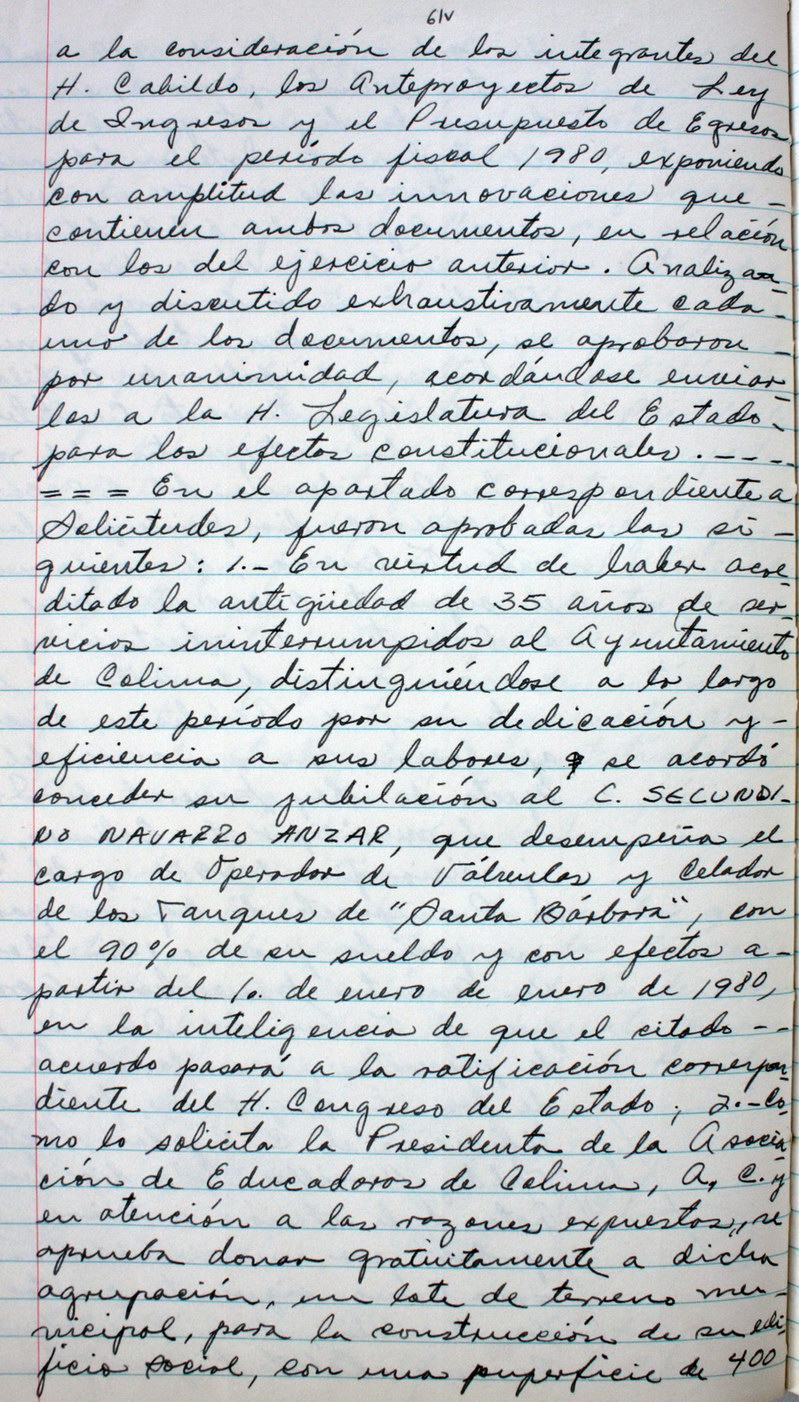 61v
a la consideración de los integrantes del
H. Cabildo, los Anteproyectos de Ley
de Ingresos y el Presupuesto de Egresos
para el período fiscal 1980, exponiendo
con amplitud las innovaciones que -
contienen ambos documentos, en relación
con los del ejercicio anterior. Analizan-
do y discutido exhaustivamente cada -
uno de los documentos, se aprobaron -
por unanimidad, acordándose enviar-
los a la H. Legislatura del Estado -
para los efectos constitucionales. - - - -
= = = En el apartado correspondiente a
Solicitudes, fueron aprobadas las si -
guientes: 1.- En virtud de haber acre-
ditado la antigüedad de 35 años de ser-
vicios ininterrumpidos al Ayuntamiento
de Colima, distinguiéndose a lo largo
de este período por su dedicación y -
eficiencia a sus labores, se acordó
conceder su jubilación al C. SECUNDI-
NO NAVARRO ANZAR, que desempeña el
cargo de Operador de Válvulas y Celador
de los Tanques de "Santa Bárbara", con
el 90% de su sueldo y con efectos a -
partir del 1o. de enero de enero de 1980,
en la inteligencia de que el citado - -
acuerdo pasará a la ratificación correspon-
diente del H. Congreso del Estado; 2.- Co-
mo lo solicita la Presidenta de la Asocia-
ción de Educadoras de Colima, A. C. y
en atención a las razones expuestas, se
aprueba donar gratuitamente a dicha
agrupación, un lote de terreno mu-
nicipal, para la construcción de su edi-
ficio social, con una superficie de 400